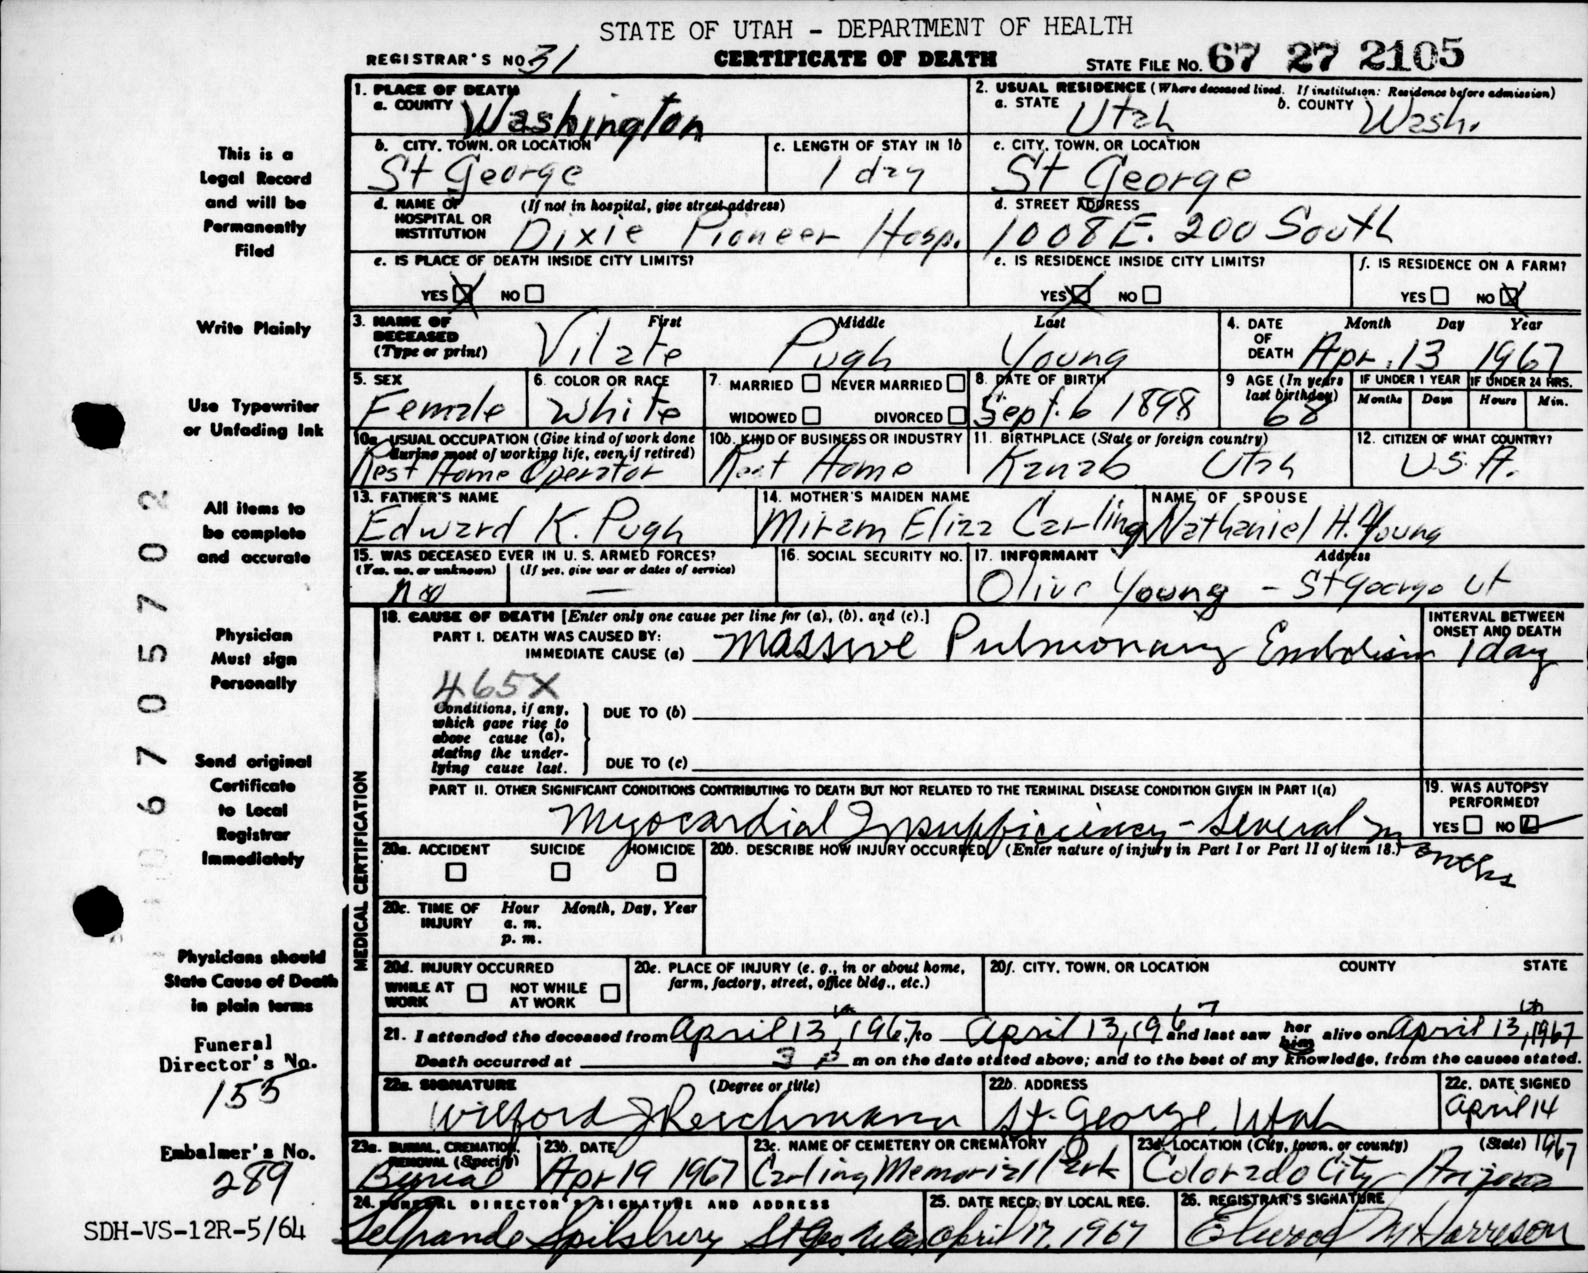 STATE OF UTAH - DEPARTMENT OF HEALTH
REGISTRAR'S NO. 31 CERTIFICATE OF DEATH STATE FILE NO. 67 27 2105
1. PLACE OF DEATH
a. COUNTY Washington
2. USUAL RESIDENCE (Where deceased lived. If institution: Residence before admission)
a. STATE Utah b. COUNTY Wash.
b. CITY, TOWN, OR LOCATION St George
c. LENGTH OF STAY IN 1b 1 day
c. CITY, TOWN, OR LOCATION St George
d. NAME OF HOSPITAL OR INSTITUTION (If not in hospital, give street address) Dixie Pioneer Hosp.
d. STREET ADDRESS 1008 E. 200 South
e. IS PLACE OF DEATH INSIDE CITY LIMITS?
YES NO
e. IS RESIDENCE INSIDE CITY LIMITS?
YES NO
f. IS RESIDENCE ON A FARM?
YES NO
3. NAME OF DECEASED (Type or print) First Middle Last
Vilate Pugh Young
4. DATE OF DEATH Month Day Year
Apr. 13 1967
5. SEX Female
6. COLOR OR RACE White
7. MARRIED NEVER MARRIED
WIDOWED DIVORCED
8. DATE OF BIRTH Sept. 6 1898
9 AGE (In years last birthday) 68
IF UNDER 1 YEAR Months Days
IF UNDER 24 HRS. Hours Min.
10a. USUAL OCCUPATION (Give kind of work done during most of working life, even if retired)
Rest Home Operator
10b. KIND OF BUSINESS OR INDUSTRY Rest Home
11. BIRTHPLACE (State or foreign country) Kanab Utah
12. CITIZEN OF WHAT COUNTRY? U.S.A.
13. FATHER'S NAME Edward K. Pugh
14. MOTHER'S MAIDEN NAME Miram Eliza Carling
NAME OF SPOUSE Nathaniel H. Young
15. WAS DECEASED EVER IN U. S. ARMED FORCES?
(Yes, no, or unknown) (If yes, give war or dates of service)
no —
16. SOCIAL SECURITY NO.
17. INFORMANT Address
Olive Young - St George Ut
18. CAUSE OF DEATH [Enter only one cause per line for (a), (b), and (c).]
PART I. DEATH WAS CAUSED BY:
IMMEDIATE CAUSE (a) Massive Pulmonary Embolism
INTERVAL BETWEEN ONSET AND DEATH
1 day
465X
Conditions, if any, which gave rise to above cause (a), stating the underlying cause last.
DUE TO (b)
DUE TO (c)
PART II. OTHER SIGNIFICANT CONDITIONS CONTRIBUTING TO DEATH BUT NOT RELATED TO THE TERMINAL DISEASE CONDITION GIVEN IN PART I(a)
Myocardial Insufficiency - Several months
19. WAS AUTOPSY PERFORMED?
YES NO
20a. ACCIDENT SUICIDE HOMICIDE
20b. DESCRIBE HOW INJURY OCCURRED. (Enter nature of injury in Part I or Part II of item 18.)
20c. TIME OF INJURY Hour Month, Day, Year
a. m.
p. m.
20d. INJURY OCCURRED
WHILE AT WORK NOT WHILE AT WORK
20e. PLACE OF INJURY (e. g., in or about home, farm, factory, street, office bldg., etc.)
20f. CITY, TOWN, OR LOCATION COUNTY STATE
21. I attended the deceased from April 13, 1967, to April 13, 1967 and last saw her him alive on April 13th, 1967
Death occurred at 3 p m on the date stated above; and to the best of my knowledge, from the causes stated.
22a. SIGNATURE (Degree or title)
Wilford J Reichmann
22b. ADDRESS St. George, Utah
22c. DATE SIGNED April 14 1967
23a. BURIAL, CREMATION, REMOVAL (Specify) Burial
23b. DATE Apr 19 1967
23c. NAME OF CEMETERY OR CREMATORY Carling Memorial Park
23d. LOCATION (City, town, or county) (State)
Colorado City Arizona
24. FUNERAL DIRECTOR'S SIGNATURE AND ADDRESS
Spilsbury St Geo. Utah
25. DATE RECD. BY LOCAL REG. April 17, 1967
26. REGISTRAR'S SIGNATURE
Elwood M Harrison
MEDICAL CERTIFICATION
This is a
Legal Record
and will be
Permanently
Filed
Write Plainly
Use Typewriter
or Unfading Ink
All items to
be complete
and accurate
Physician
Must sign
Personally
Send original
Certificate
to Local
Registrar
Immediately
Physicians should
State Cause of Death
in plain terms
Funeral
Director's No.
155
Embalmer's No.
289
SDH-VS-12R-5/64
0 6 7 0 5 7 0 2